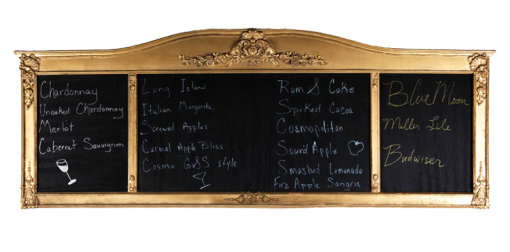 Chardonnay
Unoaked Chardonnay
Merlot
Cabernet Sauvignon
Long Island
Italian Margarita
Screwed Apples
Carmel Apple Bliss
Cosmo Style
Rum & Coke
Spiked Cocoa
Cosmopolitan
Sour Apple
Smashed Lemonade
Fire Apple Sangria
Blue Moon
Miller Lite
Budwiser